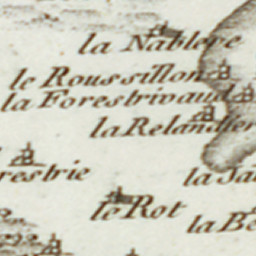 la Nableve
le Roussillon
la Forestrivaud
la Reland
restrie
la Ja
le Rot
la Be